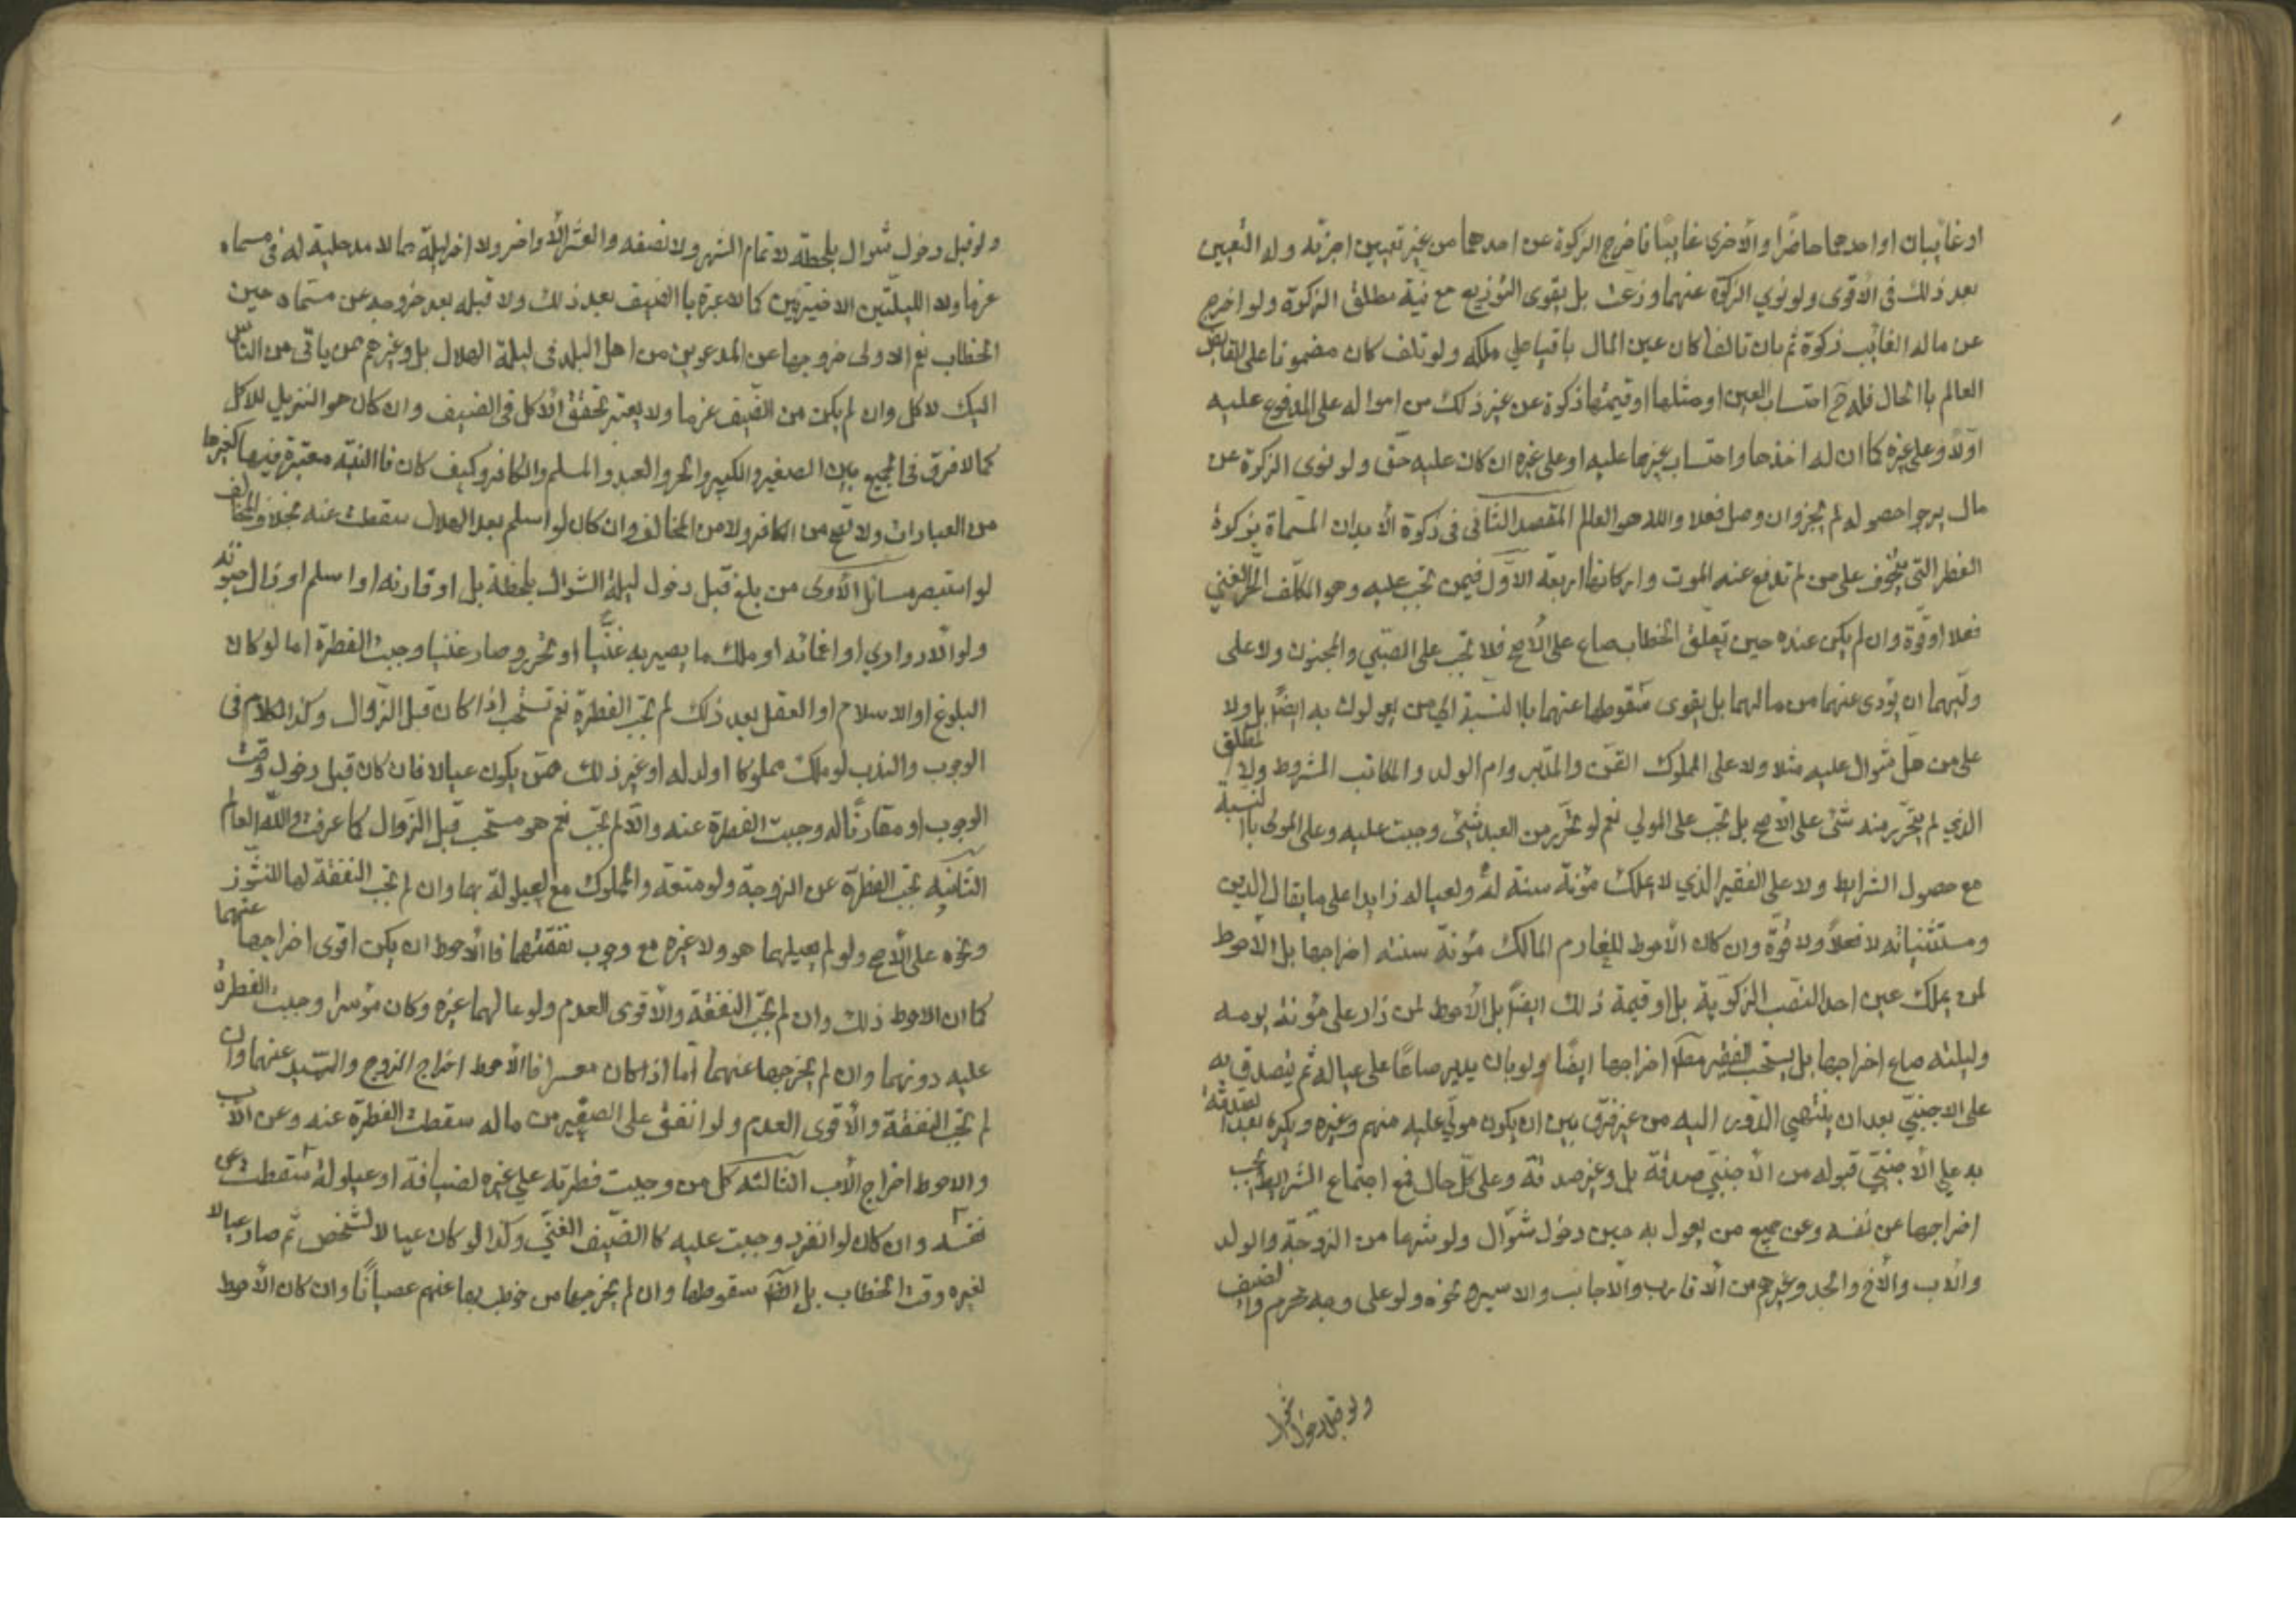 او غايبان او احدهما حاضرا والأخرى غايبا فاخرج الزكوة عن احدهما من غير تعيين اجزئه وله التعيين
بعد ذلك فى الأقوى ولو نوي الزكوة عنهما وزعت بل يقوى التوزيع مع نية مطلق الزكوة ولو اخرج
عن ماله الغائب زكوة ثم بان تالفا كان عين المال باقيا علي ملكه ولو تلف كان مضمونا على القابض
العالم باالحال فله ح احتساب العين او مثلها او قيمتها زكوة عن غير ذلك من امواله على المدفوع عليه
اولا وعلى غيره كما ان له اخذها واحتساب غيرها عليه او على غيره ان كان عليه حق ولو نوى الزكوة عن
مال يرجوا حصوله لم يجز وان وصل فعلا والله هو العالم المقصد الثانى فى زكوة الأبدان المسماة بزكوة
الفطر التى يتخوف على من لم تدفع عنه الموت واركانها اربعة الاول فيمن تجب عليه وهو المكلف الحر الغني
فعلا او قوة وان لم يكن عنده حين تعلق الخطاب صاع على الأصح فلا تجب على الصبي والمجنون ولا على
وليهما ان يؤدى عنهما من مالهما بل يقوى سقوطها عنهما باالنسبة الى من يعولون به ايضا بل ولا
على من هل شوال عليه مثلا ولا على المملوك القن والمدبر وام الولد والمكاتب المشروط ولا المطلق
الذي لم يتحرر منه شئ على الأصح بل تجب على المولي نعم لو تحرر من العبد شئ وجبت عليه وعلى المولى باالنسبة
مع حصول الشرايط ولا على الفقير الذي لا يملك مؤنة سنة له ولعياله زايدا على ما يقابل الدين
ومستثنياته لا فعلا ولا قوة وان كان الأحوط للغارم المالك مؤنة سنته اخراجها بل الأحوط
لمن يملك عين احد النصب الزكوية بل او قيمة ذلك ايضا بل الأحوط لمن زاد على مؤنة يومه
وليلته صاع اخراجها بل يستحب للفقير اخراجها ايضا ولو بان يدير صاعا على عياله ثم يتصدق به
على الاجنبي بعد ان ينتهي الدور اليه من غير فرق بين ان يكون مولى عليه منهم وغيره ويكره
به علي الأجنبي قبوله من الأجنبي صدقة بل وغير صدقة وعلى كل حال فمع اجتماع الشرايط يجب
اخراجها عن نفسه وعن جميع من يعول به حين دخول شوال ولو شرعا من الزوجة والولد
والأب والأخ والجد وغيرهم من الأقارب والأجانب والاسير ونحوه ولو على وجه محرم والضيف
ولو قبل دخول شوال
ولو قبل دخول شوال بلحظة لا تمام الشهر ولا نصفه والعشر الأواخر ولا اخر ليلة مما لا مدخلية له فى مسماه
عرفا ولا الليلتين الاخيرتين كما لا عبرة باالضيف بعد ذلك ولا قبله بعد خروجه عن مسماه حين
الخطاب نعم الاولى خروجها عن المدعوين من اهل البلد فى ليلة الهلال بل وغيرهم ممن ياتى من الناس
اليك لاكل وان لم يكن من الضيف عرفا ولا يعتبر تحقق الأكل فى الضيف وان كان هو النزيل للأكل
كما لا فرق فى الجميع بين الصغير والكبير والحر والعبد والمسلم والكافر وكيف كان فاالنية معتبرة فيها كغيرها
من العبادات ولا تصح من الكافر ولا من المخالف وان كان لو اسلم بعد الهلال سقطت عنه بخلاف المخالف
لو استبصر مسائل الأولى من بلغ قبل دخول ليلة الشوال بلحظة بل او قارنه او اسلم او زال جنونه
ولو الأدواري او اغمائه او ملك ما يصير به غنيا او تحرر وصار غنيا وجبت الفطرة اما لو كان
البلوغ او الاسلام او العقل بعد ذلك لم تجب الفطرة نعم تستحب اذا كان قبل الزوال وكذا الكلام فى
الوجوب والندب لو ملك مملوكا او ولد له او غير ذلك ممن يكون عيالا فان كان قبل دخول وقت
الوجوب او مقارنا له وجبت الفطرة عنه والا لم تجب نعم هو مستحب قبل الزوال كما عرفت والله العالم
الثانيه تجب الفطرة عن الزوجة ولو متعة والمملوك مع العيلولة بها وان لم تجب النفقة لها للنشوز
ونحوه على الأصح ولو لم يعيلهما هو ولا غيره مع وجوب نفقتهما فاالأحوط ان يكن اقوى اخراجها عنهما
كما ان الاحوط ذلك وان لم تجب النفقة والأقوى العدم ولو عالهما غيره وكان مؤسرا وجبت الفطرة
عليه دونهما وان لم يخرجها عنهما اما اذا كان معسرا فاالأحوط اخراج الزوج والسيد عنهما وان
لم تجب النفقة والأقوى العدم ولو انفق على الصغير من ماله سقطت الفطرة عنه وعن الأب
والاحوط اخراج الأب الثالثه كل من وجبت فطرته علي غيره لضيافة او عيلولة سقطت عن
نفسه وان كان لو انفرد وجبت عليه كا الضيف الغني وكذا لو كان عيالا لشخص ثم صار عيالا
لغيره وقت الخطاب بل سقوطها وان لم يخرجها من خوطب بها عنهم عصيانا وان كان الأحوط